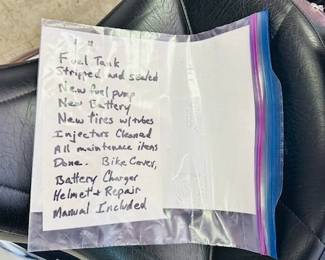 Fuel Tank
Stripped and sealed
New fuel pump
New Battery
New tires w/tubes
Injectors Cleaned
All maintenace items
Done. Bike Cover,
Battery Charger
Helmet & Repair
Manual Included